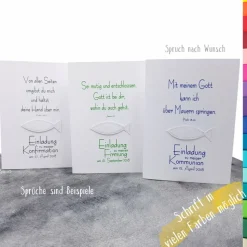 Spruch nach Wunsch
Von allen Seiten
umgibst du mich
und hältst
deine Hand über mir.
Einladung
zu meiner
Konfirmation
am 12. April 2018
Sei mutig und entschlossen!
Gott ist bei dir,
wohin du auch gehst.
Einladung
zu meiner
Firmung
Mit meinem Gott
kann ich
über Mauern springen.
Einladung
zu meiner
Kommunion
am 12. April 2018
Sprüche sind Beispiele
Schrift in
vielen Farben möglich